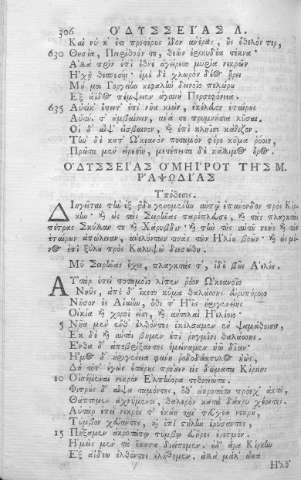 306 ὈΔΥΣΣΕΊΑΣ Λ.
Καί νύ κ' ἔτι προτέρους ἴδον ἀνέρας, οὓς ἔθελόν περ,
630 Θησέα, Πειρίθοόν τε, θεῶν ἐρικυδέα τέκνα·
Ἀλλὰ πρὶν ἐπὶ ἔθνε' ἀγείρετο μυρία νεκρῶν
Ἠχῇ θεσπεσίῃ· ἐμὲ δὲ χλωρὸν δέος ᾕρει
Μή μοι Γοργείην κεφαλὴν δεινοῖο πελώρου
Ἐξ ἄϊδος πέμψειεν ἀγαυὴ Περσεφόνεια.
635 Αὐτίκ' ἔπειτ' ἐπὶ νῆα κιὼν, ἐκέλευον ἑταίρους
Αὐτούς τ' ἀμβαίνειν, ἀνά τε πρυμνήσια λῦσαι.
Οἱ δ' αἶψ' εἴσβαινον, ἐπὶ κληῗσι κάθιζον.
Τὴν δὲ κατ' Ὠκεανὸν ποταμὸν φέρε κῦμα ῥόοιο,
Πρῶτα μὲν εἰρεσίῃ, μετέπειτα δὲ κάλλιμος οὖρος.
ὈΔΥΣΣΕΊΑΣ ὉΜΉΡΟΥ ΤΗΣ Μ.
ῬΑΨΩΔΊΑΣ
Ὑπόθεσις.
Μ̃ Σειρῆνας ἔχει, πλαγκτάς τ', ἰδὲ βῦς Ἀελίου.
Αὐτὰρ ἐπεὶ ποταμοῖο λίπεν ῥόον Ὠκεανοῖο
Νηῦς, ἀπὸ δ' ἵκετο κῦμα θαλάσσης εὐρυπόροιο
Νῆσόν τ' Αἰαίην, ὅθι τ' Ἠοῦς ἠριγενείης
Οἰκία καὶ χοροί εἰσι, καὶ ἀντολαὶ Ἠελίοιο·
5 Νῆα μὲν ἔνθ' ἐλθόντες ἐκέλσαμεν ἐν ψαμάθοισιν,
Ἐκ δὲ καὶ αὐτοὶ βῆμεν ἐπὶ ῥηγμῖνι θαλάσσης·
Ἔνθα δ' ἀποβρίξαντες ἐμείναμεν ἠῶ δῖαν.
Ἦμος δ' ἠριγένεια φάνη ῥοδοδάκτυλος ἠώς,
Δὴ τότ' ἐγὼν ἑτάρους προΐειν ἐς δώματα Κίρκης
10 Οἰσέμεναι νεκρὸν Ἐλπήνορα τεθνειῶτα.
Φιτροὺς δ' αἶψα ταμόντες, ὅθ' ἀκροτάτη πρόεχ' ἀκτή,
Θάπτομεν ἀχνύμενοι, θαλερὸν κατὰ δάκρυ χέοντες.
Αὐτὰρ ἐπεὶ νεκρός τ' ἐκάη καὶ τεύχεα νεκροῦ,
Τύμβον χεύαντες, καὶ ἐπὶ στήλην ἐρύσαντες,
15 Πήξαμεν ἀκροτάτῳ τύμβῳ εὐῆρες ἐρετμόν.
Ἡμεῖς μὲν τὰ ἕκαστα διείπομεν. οὐδ' ἄρα Κίρκην
Ἐξ ἀΐδεω ἐλθόντες ἐλήθομεν, ἀλλὰ μάλ' ὦκα
Ἦλθ'